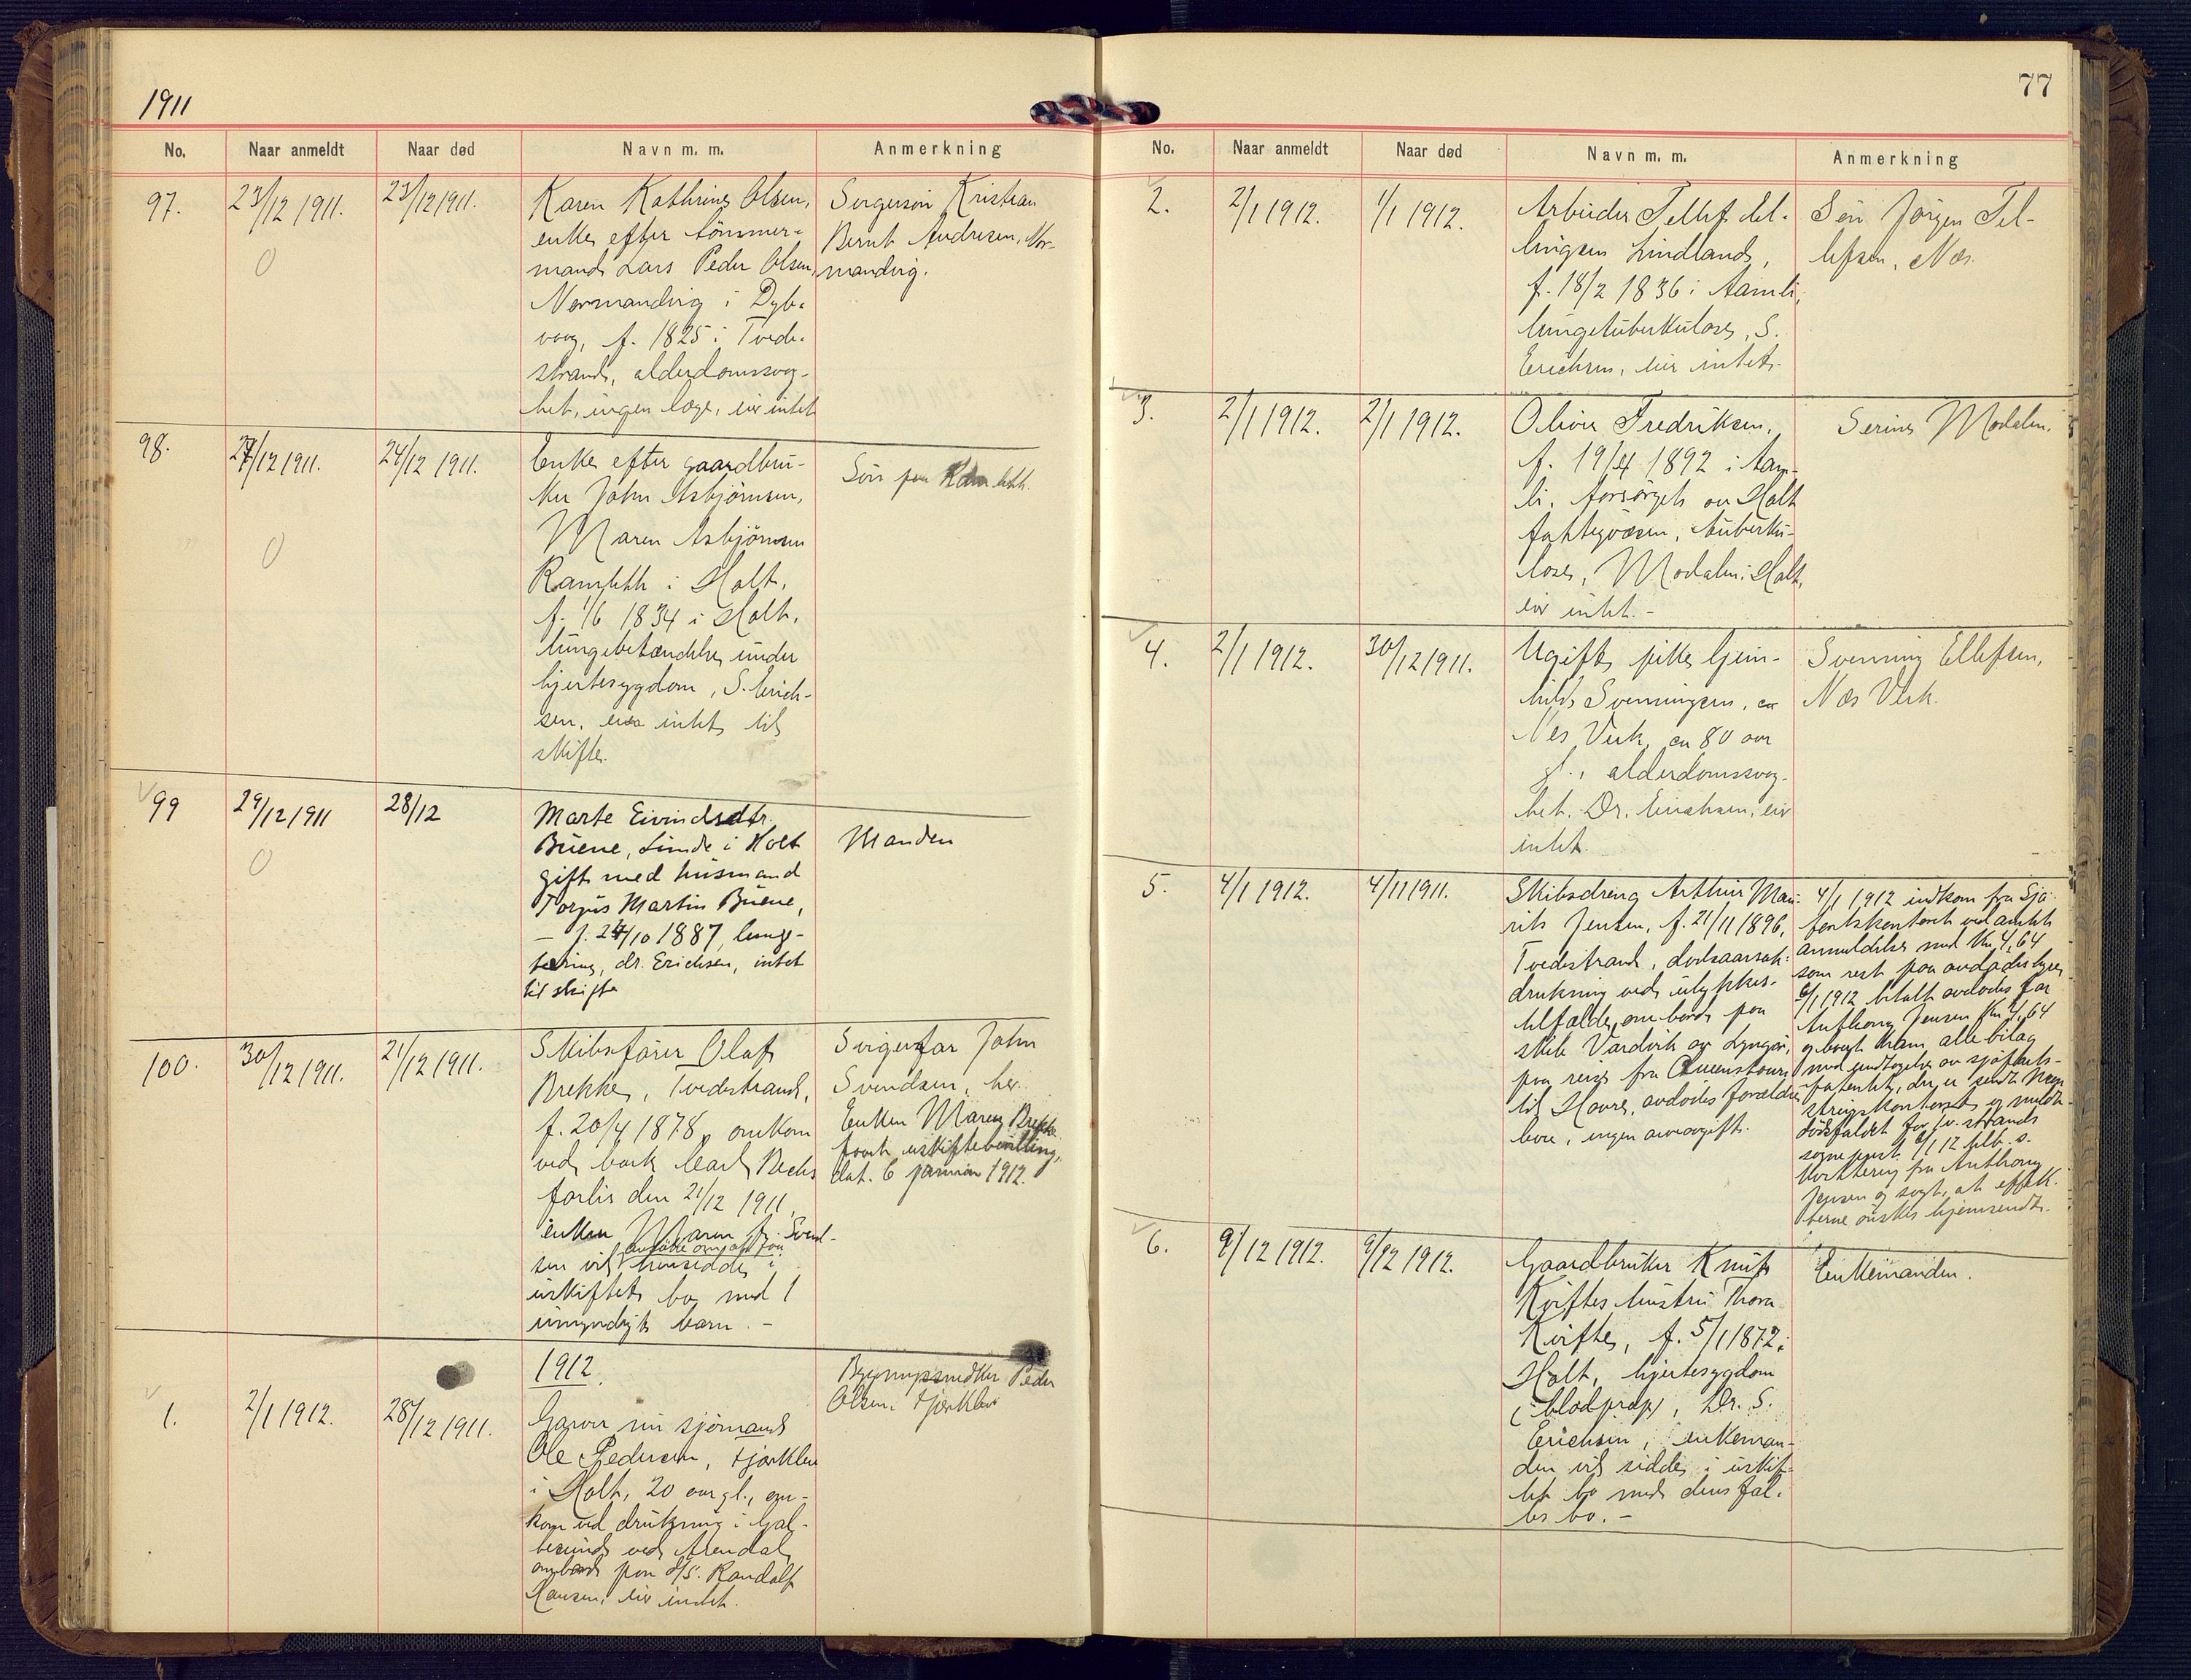 1911
No. Naar anmeldt Naar død Navn m. m. Anmerkning
97. 23/12 1911. 23/12 1911. Karen Kathrine Olsen,
enke efter tömmer-
mand Lars Peder Olsen,
Normandvig i Dyb-
vaag, f. 1825 i Tvede-
strand, alderdomssvag-
het, ingen læge, eier intet
Svigersön Kristian
Bernt Andresen, Nor-
mandvig.
98. 27/12 1911. 24/12 1911. Enke efter gaardbru-
ker John Asbjörnsen,
Maren Asbjörnsen
Ramleth i Holt,
f. 1/6 1834 i Holt,
lungebetændelse under
hjertesygdom, S. Erich-
sen, eier intet til
skifte.
Sön paa
99 29/12 1911 28/12 Marte Eivindsdtr.
Buene, Lunde i Holt
gift med husmand
Torjus Martin Buene,
— f. 24/10 1887, lunge-
tæring, dr. Erichsen, intet
til skifte
Manden
100. 30/12 1911. 21/12 1911. Skibsförer Olaf
Brekke, Tvedestrand,
f. 20/4 1878, omkom
ved bark Carl Bechs
forlis den 21/12 1911,
enken Maren f. Svend-
ansöke om at faa
sen vil hensidde i
uskiftet bo med 1
umyndigt barn. -
Svigerfar John
Svendsen, her.
Enken Maren Brekke
faat uskiftebevilling,
dat. 6 januar 1912.
1912.
1. 2/1 1912. 28/12 1911. Garver nu sjömand
Ole Pedersen, Fjærkleiv
i Holt, 20 aar gl., om-
kom ved drukning i Gal-
tesund ved Arendal
ombord paa d/s. Randolf
Hansen, eier intet.
Bygningssnedker Peder
Olsen, Fjærkleiv
77
No. Naar anmeldt Naar død Navn m. m. Anmerkning
2. 2/1 1912. 1/1 1912. Arbeider Tellef
Lindland,
f. 18/2 1836 i Aamli,
lungetuberkulose, S.
Erichsen, eier intet.
Sön Jörgen Tel-
lefsen, Næs.
3. 2/1 1912. 2/1 1912. Oliver Fredriksen,
f. 19/4 1892 i Aam-
li, forsörget av Holt
fattigvæsen, tuberku-
lose, Modalen i Holt,
eier intet. -
Serine Modalen.
4. 2/1 1912. 30/12 1911. Ugift pike Gun-
hild Svenningsen, av
Nes Verk, ca 80 aar
gl., alderdomssvag-
het. Dr. Erichsen, eier
intet.
Svenning Ellefsen,
Næs Verk.
5. 4/1 1912. 4/11 1911. Skibsdreng Arthur Mau-
rits Jensen, f. 21/11 1896,
Tvedestrand, dödsaarsak:
drukning ved ulykkes-
tilfælde, om bord paa
skib Vardvik av Lyngör,
paa reise fra Queenstown
til Havre, avdödes forældre
leve, ingen arveavgift.
4/1 1912 indkom fra Sjö-
fartskontoret ved amtet
anmeldelse med Kr. 4,64
som rest paa avdödes hyre,
6/1 1912 betalt avdödes far
Anthony Jensen Kr. 4,64
og levert ham alle bilag
med undtagelse av sjöfarts-
patentet, der er sendt Mön-
stringskontoret og meldt
dödsfaldet for tv.strands
sogneprest. 6/1 12 tilb. s.
kvittering fra Anthony
Jensen og sagt, at effek-
terne önskes hjemsendt.
6. 9/12 1912. 9/12 1912. Gaardbruker Knut
Kvifte's hustru Thora
Kvifte, f. 5/1 1872 i
Holt, hjertesygdom
(blodprop), Dr. S.
Erichsen, enkeman-
den vil sidde i uskif-
tet bo med deres fæl-
les bo. -
Enkemanden.